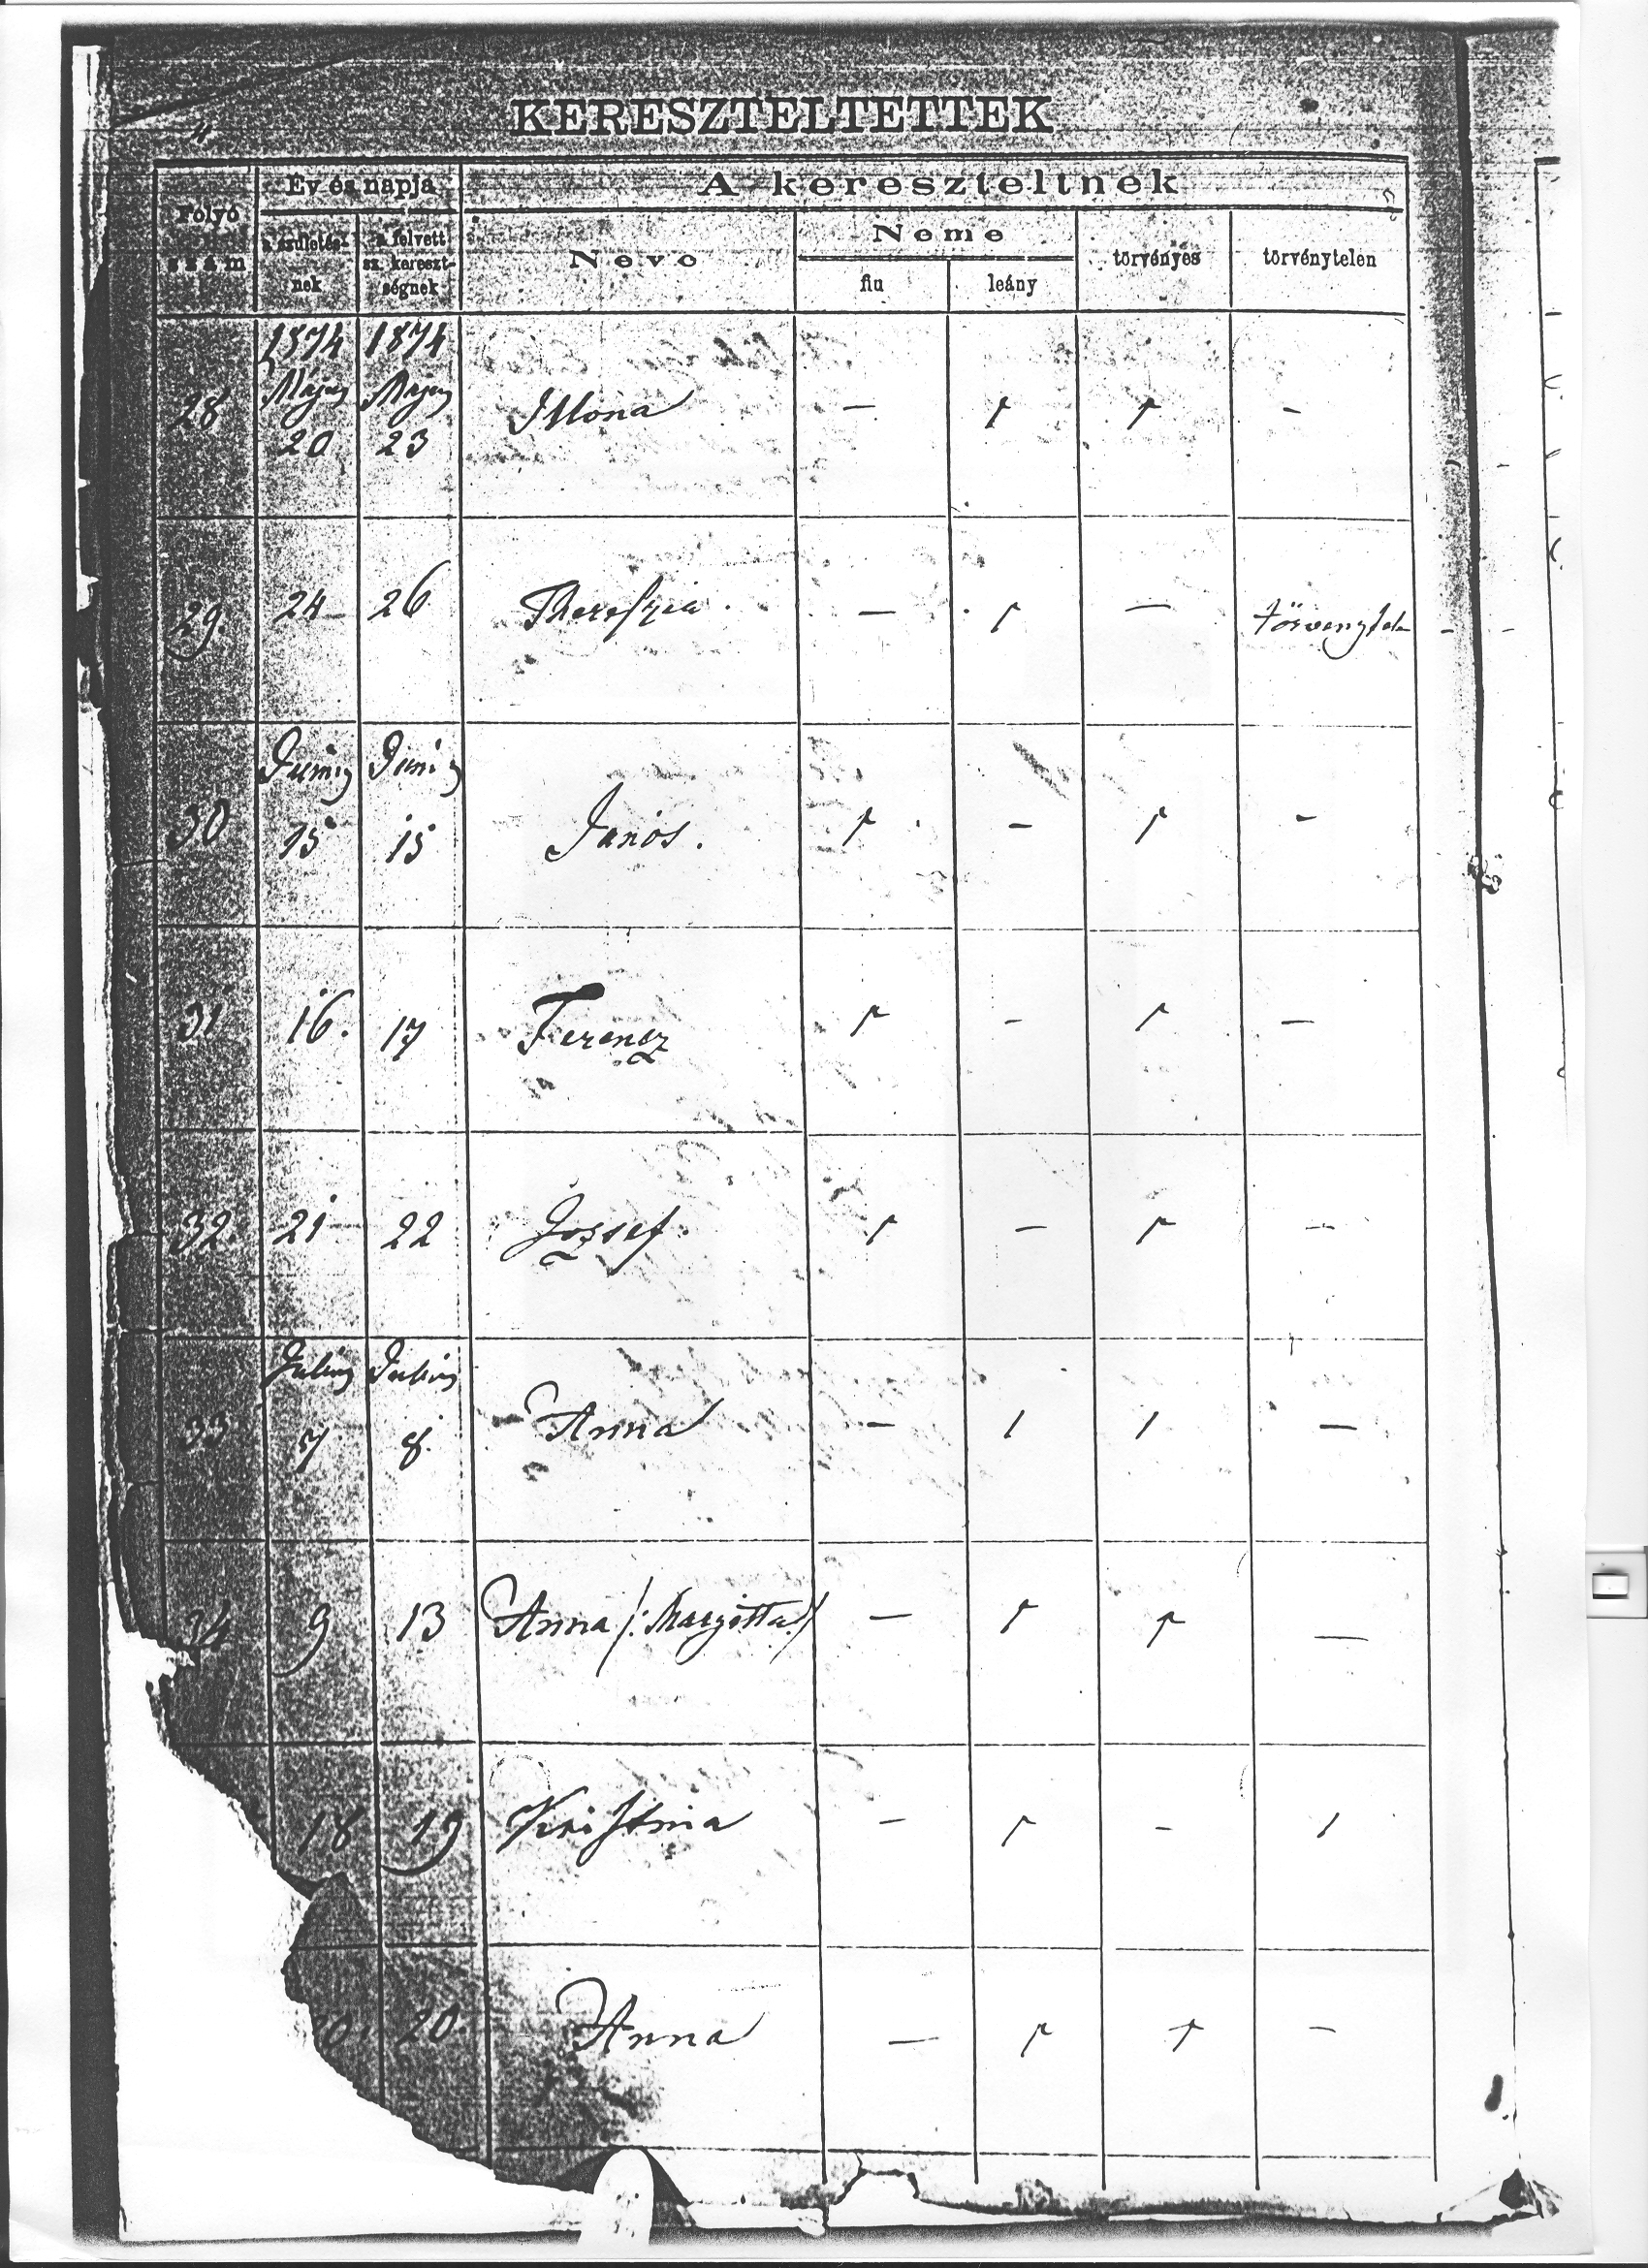 KERESZTELTETTEK
Folyó szám
Év és napja
a születés-
nek
a felvett
sz. kereszt-
ségnek
A kereszteltnek
Neve
Neme
fiu
leány
törvényes
törvénytelen
1874 1874
Május Május
28 20 23 Illona — 1 1 —
29. 24 26 Thereszia — 1 — törvenytele
Június Június
30 15 15 János. 1 — 1 —
31 16. 17 Ferencz 1 — 1 —
32 21 22 József. 1 — 1 —
Július Július
33 7 8 Anna — 1 1 —
34 9 13 Anna /: Margitta :/ — 1 1 —
18 19 Kristina — 1 — 1
20. Anna — 1 1 —